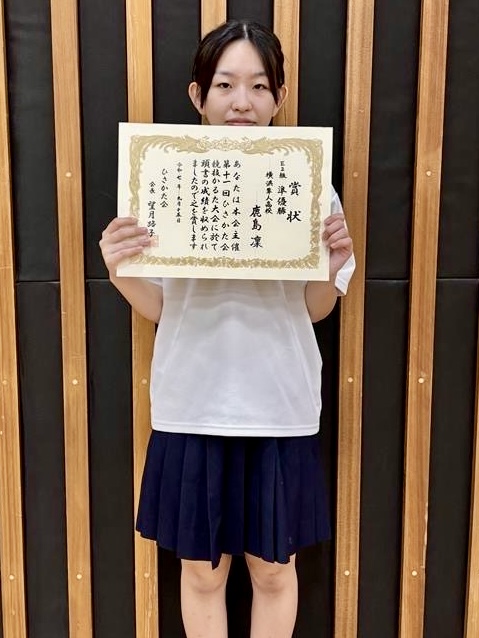 賞状
E2級 準優勝
横浜隼人高校
鹿島 凜
あなたは本会主催
第十一回ひさかた会
競技かるた大会に於て
頭書の成績を収められ
ましたので之を賞します
令和七年九月十五日
ひさかた会
会長 望月